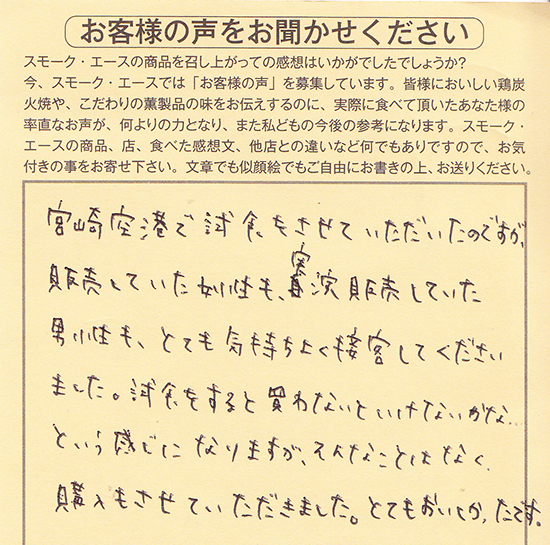 お客様の声をお聞かせください
スモーク・エースの商品を召し上がっての感想はいかがでしたでしょうか?
今、スモーク・エースでは「お客様の声」を募集しています。皆様においしい鶏炭
火焼や、こだわりの薫製品の味をお伝えするのに、実際に食べて頂いたあなた様の
率直なお声が、何よりの力となり、また私どもの今後の参考になります。スモーク・
エースの商品、店、食べた感想文、他店との違いなど何でもありですので、お気
付きの事をお寄せ下さい。文章でも似顔絵でもご自由にお書きの上、お送りください。
宮崎空港で試食をさせていただいたのですが、
販売していた女性も、実演販売していた
男性も、とても気持ちよく接客してください
ました。試食をすると買わないといけないかな…
という感じになりますが、そんなことはなく
購入もさせていただきました。とてもおいしかったです。